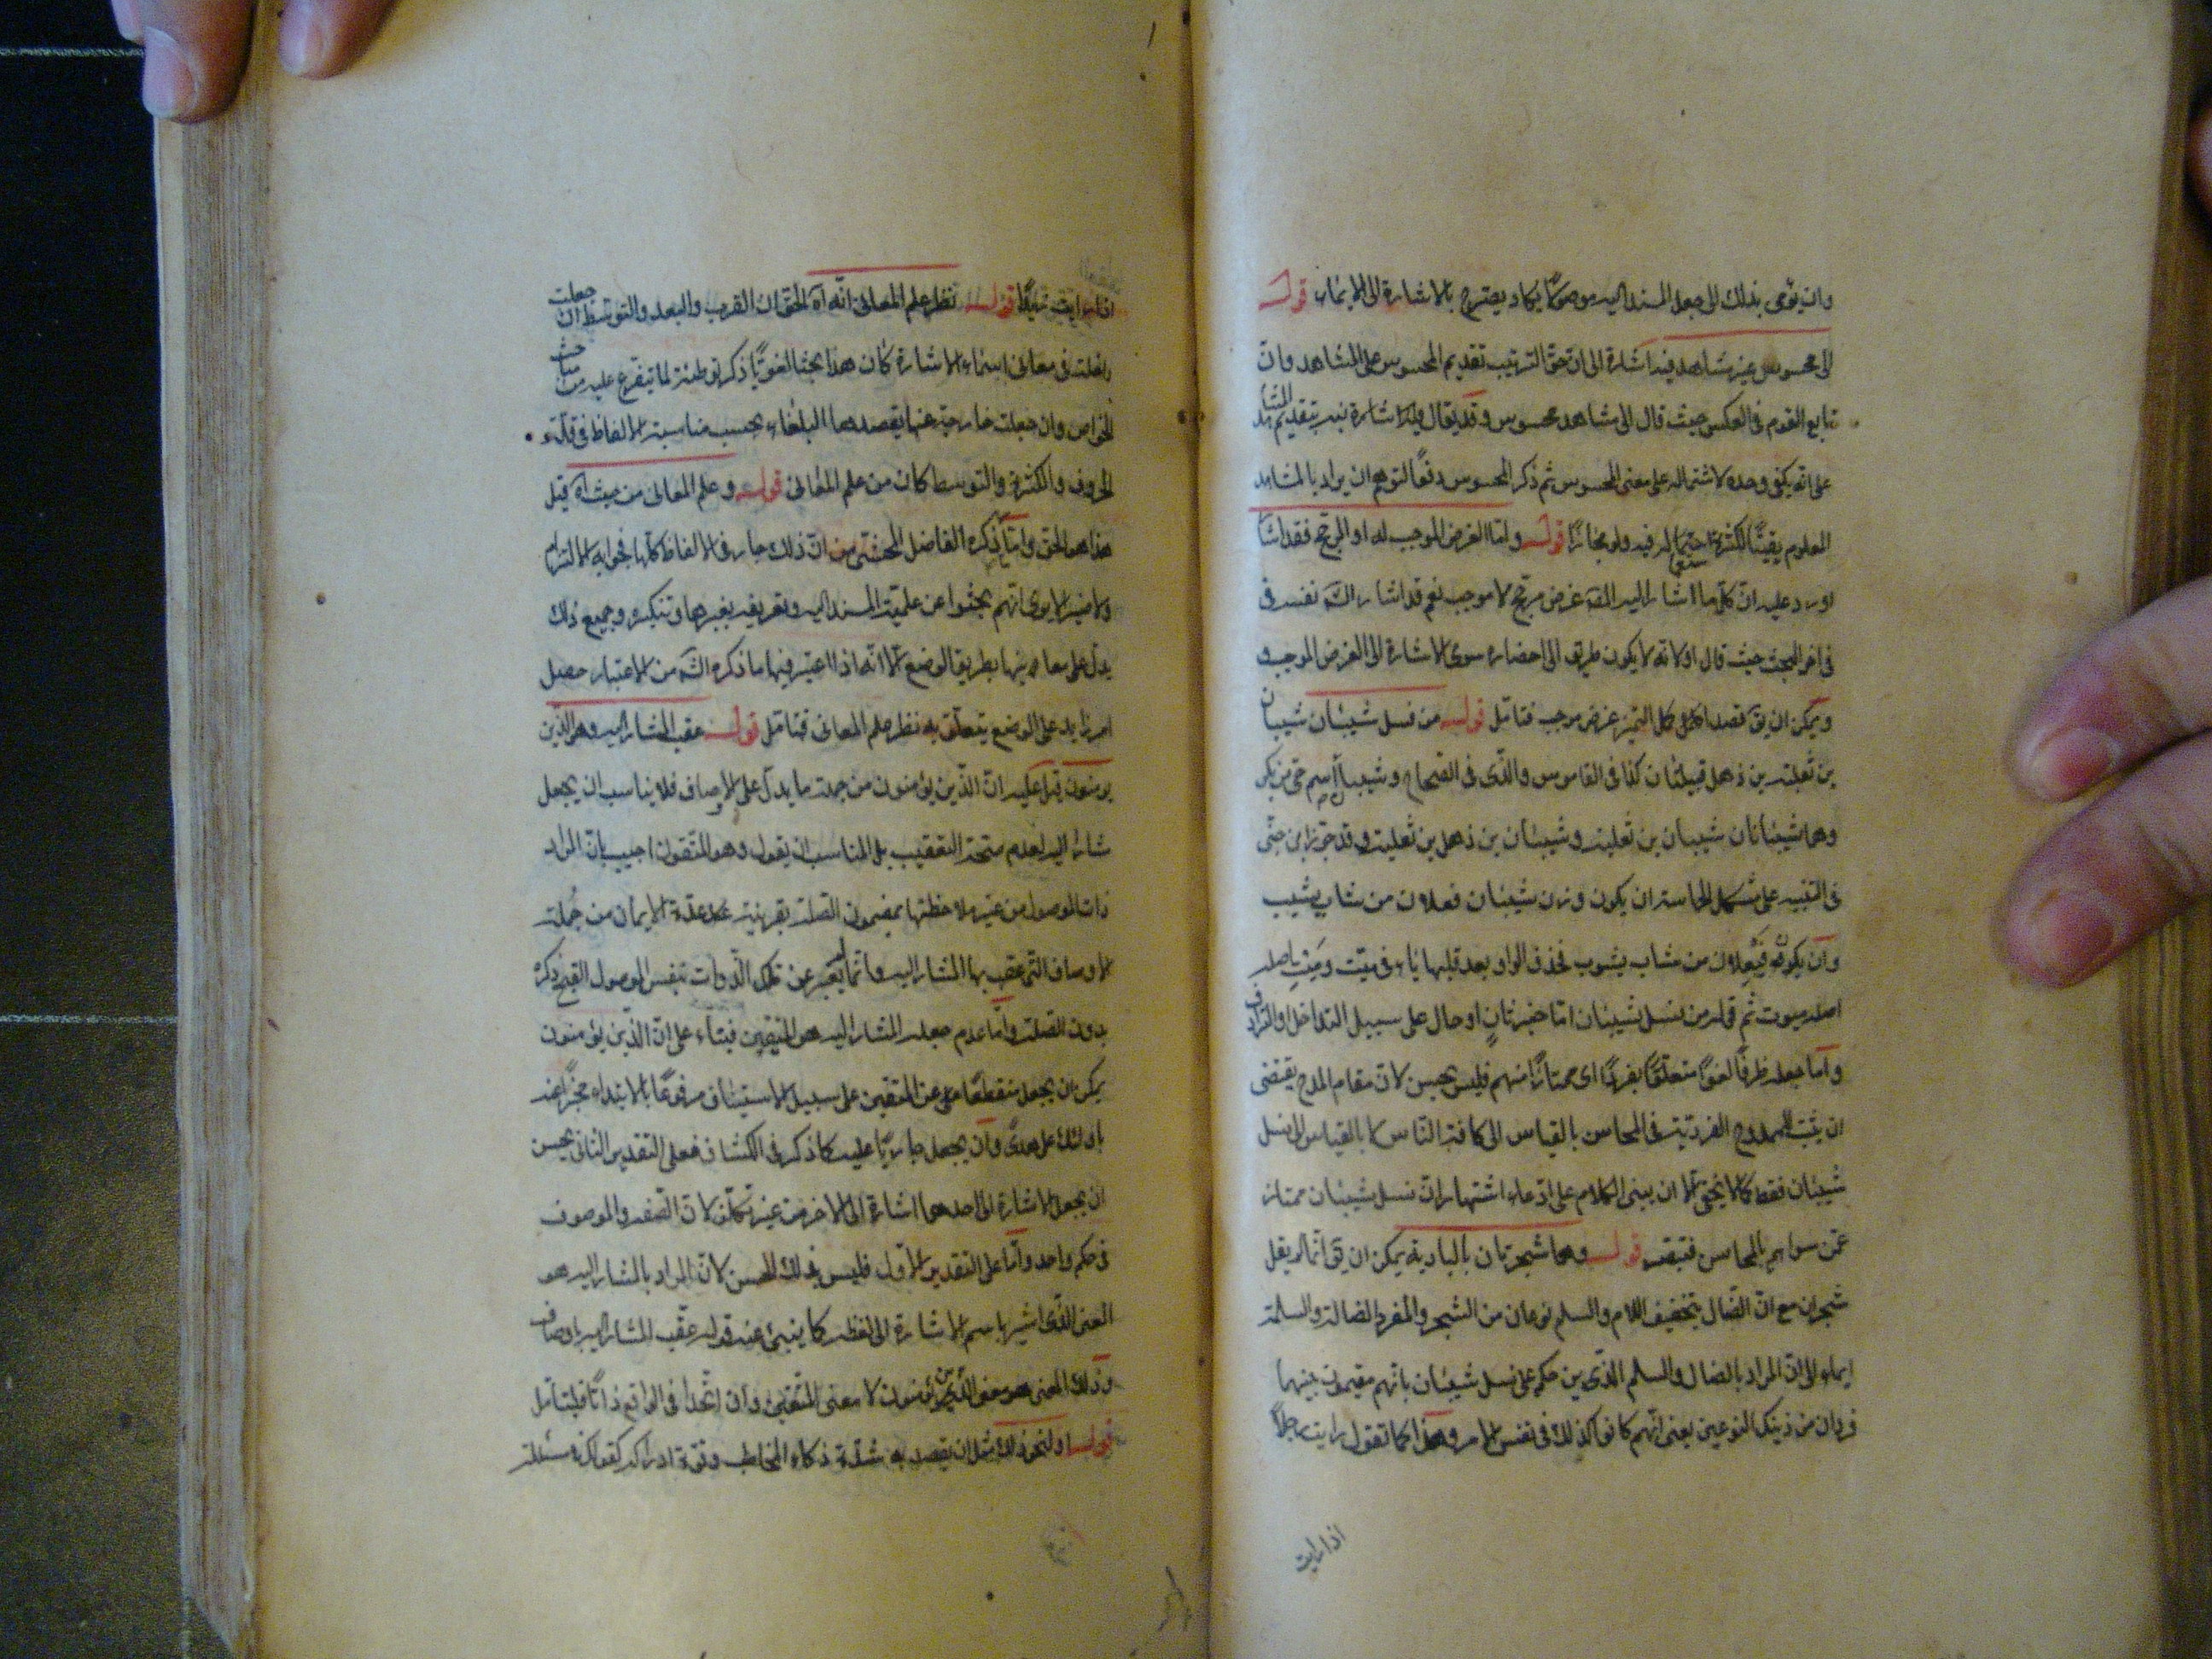 وان يومى بذلك الى جعل المسند اليه موصولا يكاد يصرح بالاشارة الى الايماء قوله
الى محسوس غير مشاهد فيه اشارة الى ان حق الترتيب تقديم المحسوس على المشاهد وان
تابع القوم فى العكس حيث قال الى مشاهد محسوس وقد يقال فيه اشارة بتقديم المشاهد
على انه يكفى وحده لاشتماله على معنى المحسوس ثم ذكر المحسوس دفعا لتوهم ان يراد بالمشاهد
المعلوم يقينا لكثرة استعماله فيه ولو مجازا قوله واما الغرض الموجب له او المرجح فقد اشار
اورد عليه ان كل ما اشار اليه المص غرض مرجح لا موجب نعم قد اشار الش نفسه فى
فى اخر المبحث حيث قال اولانه لا يكون طريق الى احضاره سوى الاشارة الى الغرض الموجب و
ويمكن ان يق قصد اكمل التميز غرض موجب فتامل قوله من نسل شيبان شيبان
بن ثعلبة بن ذهل قبيلتان كذا فى القاموس والذى فى الصحاح وشيبان اسم حى من بكر
وهما شيبانان شيبان بن ثعلبة وشيبان بن ذهل بن ثعلبة وقد جوز ابن جنى
فى التنبيه على مشكل الحماسة ان يكون وزن شيبان فعلان من شاب يشيب
وان يكون فيعلان من شاب يشوب فحذف الواو بعد قلبها ياء فى ميّت وميت باصله
اصله ميوت ثم قوله من نسل شيبان اما خبر ثان او حال على سبيل التداخل والترادف
واما جعله ظرفا لغوا متعلقا بفردا اى ممتازا منهم فليس بحسن لان مقام المدح يقتضى
ان يثبت للممدوح الفردية فى المحاسن بالقياس الى كافة الناس لا بالقياس الى نسل
شيبان فقط كما لا يخفى الا ان يبنى الكلام على ادعاء اشتهار ان نسل شيبان ممتاز
عمن سواهم بالمحاسن فتبصر قوله وهما شجرتان بالبادية يمكن ان يق انما لم يقل
شجران مع ان الضال بتخفيف اللام والسلم نوعان من الشجر والمفرد الضالة والسلمة
ايماء الى ان المراد بالضال والسلم الذى بين حكم على نسل شيبان بانهم مقيمون بينهما
فردان من ذينك النوعين يعنى انهم كانوا كذلك فى نفس الامر وهذا كما تقول رايت رجلا
اذا رايت
اذا رايت زيدا قوله نظر علم المعانى انه اه الحق ان القرب والبعد والتوسط ان جعلت
داخلة فى معانى اسماء الاشارة كان هذا بحثا لغويا ذكر توطئة لما يتفرع عليه من مباحث
الخواص وان جعلت خارجة عنها يقصدها البلغاء بحسب مناسبة الالفاظ فى قلة
الحروف والكثرة والتوسط كان من علم المعانى قوله وعلم المعانى من حيث اه قيل
هذا هو الحق واما ذكره الفاضل المحشى من ان ذلك جار فى الالفاظ كلها فجوابه الالتزام
ولا ضير الا يرى انهم بحثوا عن علمية المسند اليه وتعريفه بغيرها وتنكيره وجميع ذلك
يدل على معانيها بطريق الوضع الا انه اذا اعتبر فيها ما ذكره الش من الاعتبار حصل
امر زايد على الوضع يتعلق به نظر علم المعانى فتامل قوله عقب المشار اليه وهو الذين
يومنون قيل عليه ان الذين يؤمنون من جملة ما يدل على الاوصاف فلا يناسب ان يجعل
مشارا اليه لعدم صحة التعقيب بل المناسب ان يقول وهو المتقون اجيب بان المراد
ذات الموصول من غير ملاحظتها بمضمون الصلة بقرينة عدّ الايمان من جملة
الاوصاف التى عقب بها المشار اليه وانما لم يعبر عن تلك الذوات بنفس الموصول لقبح ذكره
بدون الصلة واما عدم جعله المشار اليه هو المتقين فبناء على ان الذين يؤمنون
يمكن ان يجعل منقطعا عن المتقين على سبيل الاستيناف مرفوعا بالابتداء مخبرا عنه
باولئك على هدى وان يجعل جاريا عليه كما ذكر فى الكشاف فعلى التقدير الثانى يحسن
ان يجعل الاشارة الى احدهما اشارة الى الاخر من غير تكلف لان الصفة والموصوف
فى حكم واحد واما على التقدير الاول فليس بذلك الحسن لان المراد بالمشار اليه هو
المعنى الذى اشير باسم الاشارة الى لفظه كما ينبئ عنه قوله عقب المشار اليه باوصاف
وذلك المعنى هو معنى الذين يؤمنون لا معنى المتقين وان اتحدا فى الواقع ذاتا فليتامل
قوله او لنحو ذلك مثل ان يقصد به شدة ذكاء المخاطب وقوة ادراكه كقولك فى مسئلة